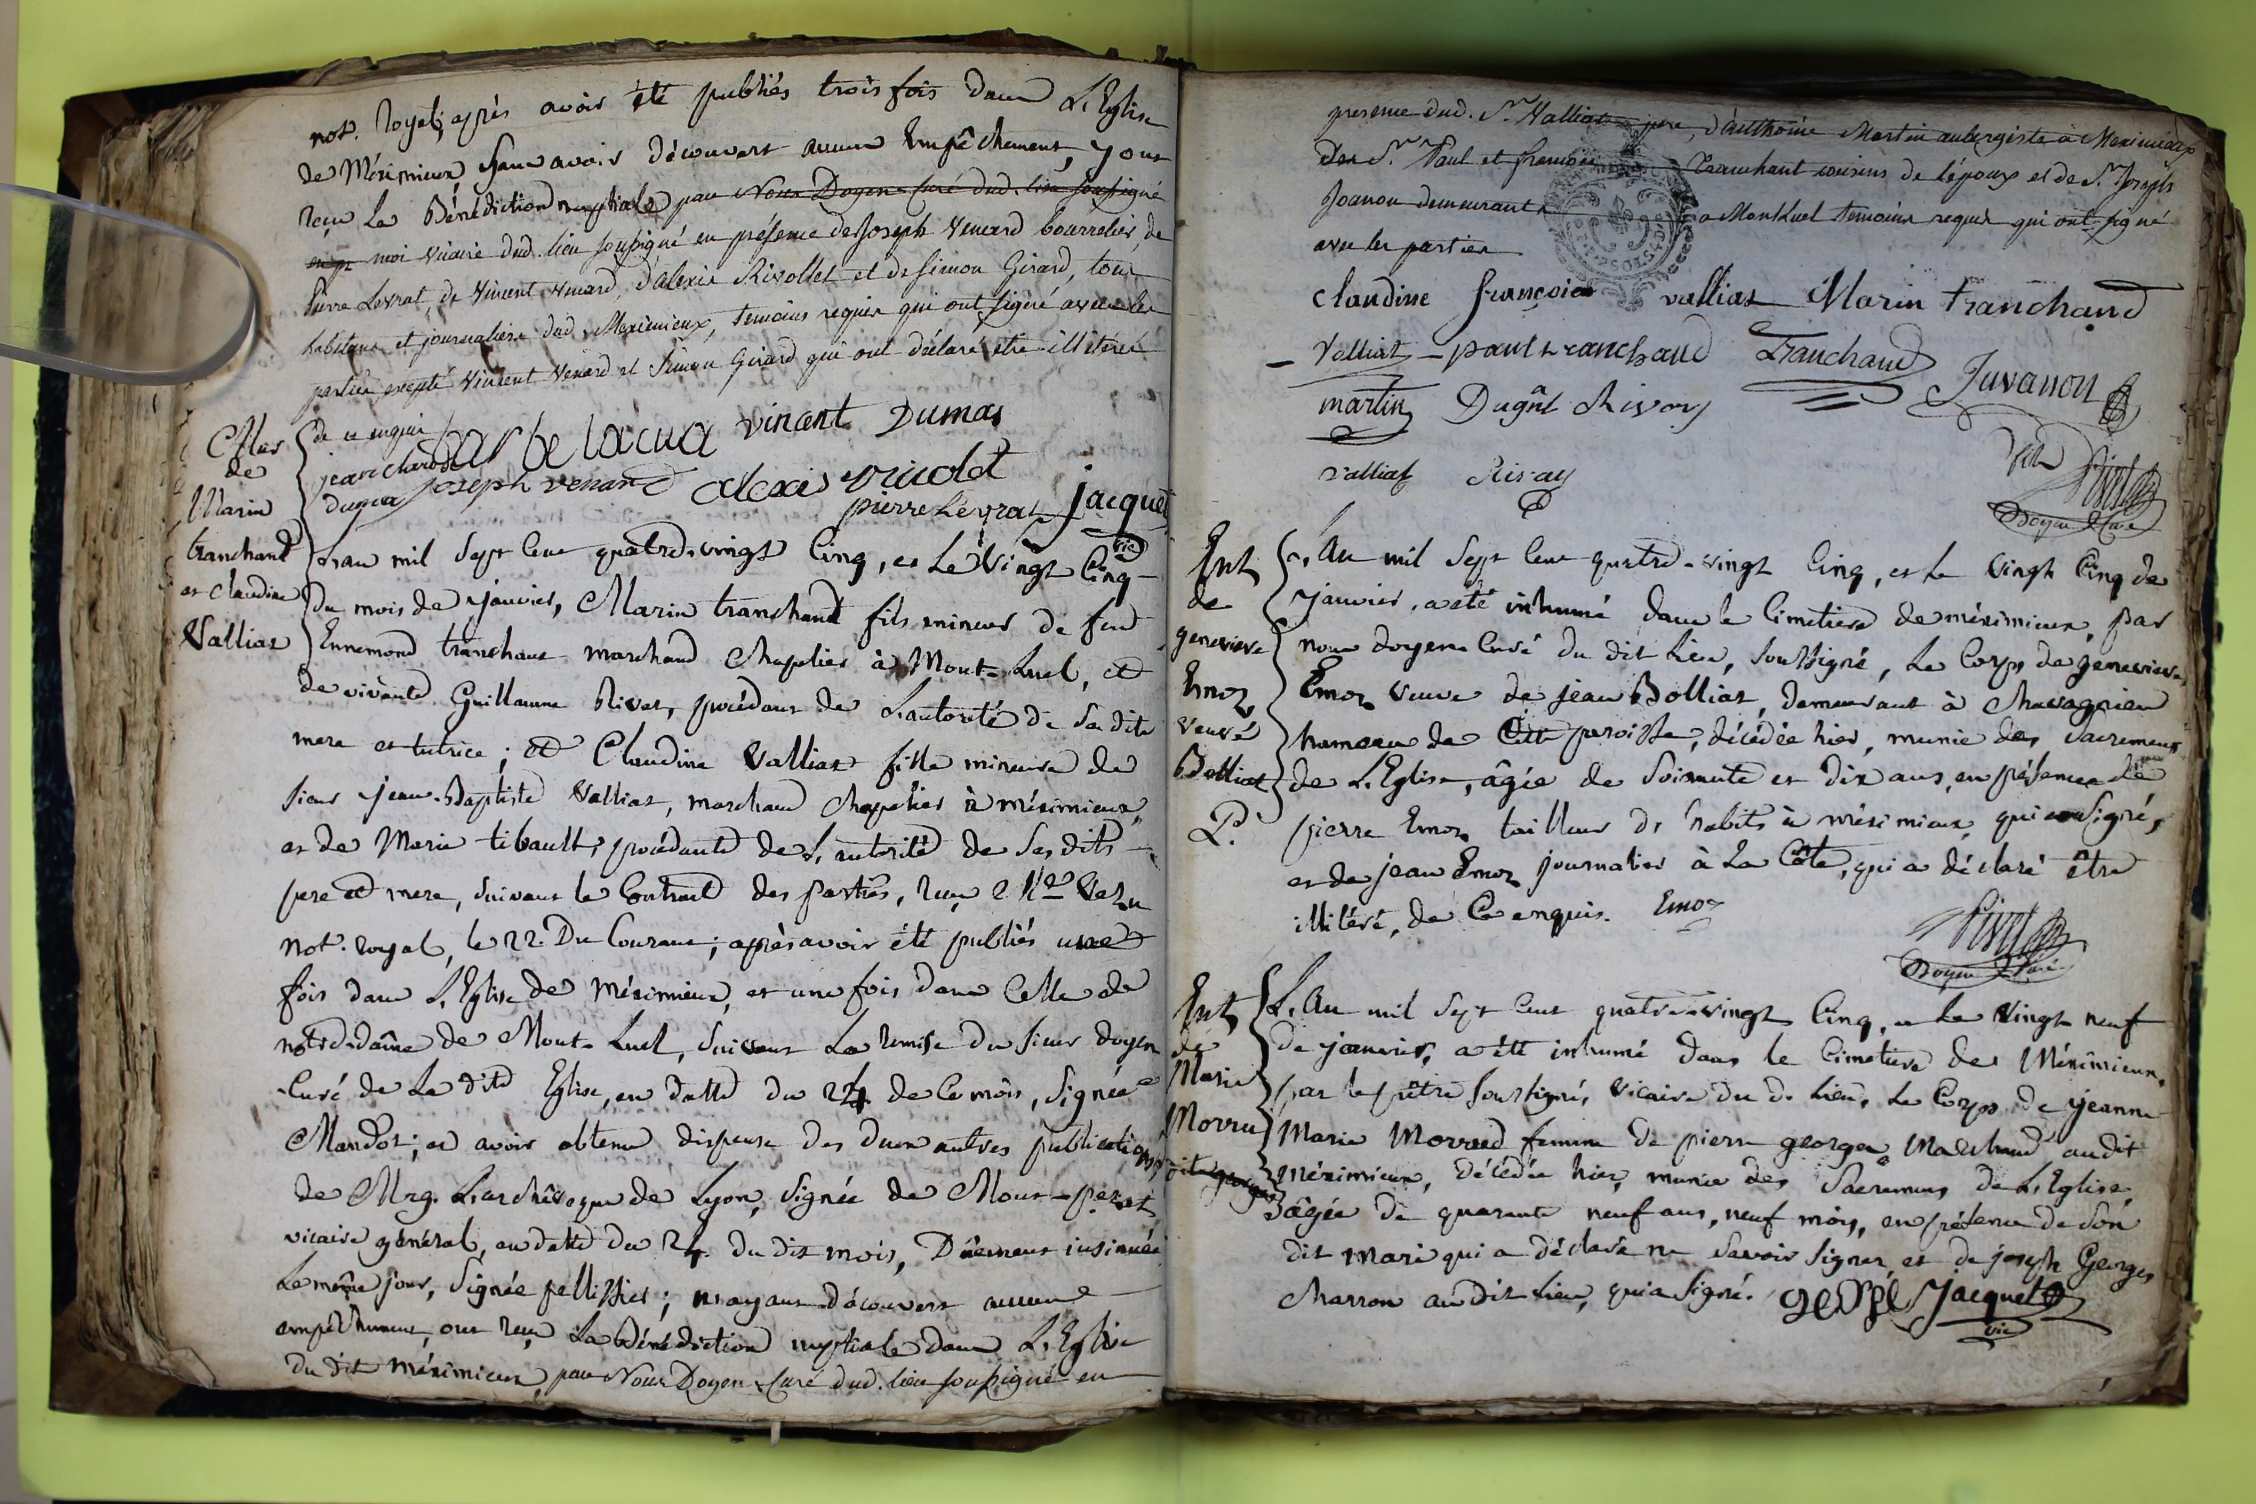 not. Royal, après avoir été publiés trois fois dans L'Eglise
de Méximieux sans avoir découvert aucun Empêchement, y ont
reçu la Bénédiction nuptiale par Nous Doyen-Curé dud. lieu soussigné
moi vicaire dud. lieu soussigné en présence de Joseph Venard bourrelier, de
Pierre Levrat, de Vincent Venard, d'alexis Rivollet et de Simon Girard, tous
habitans et journaliers dud. Meximieux, temoins requis qui ont signé avec les
parties excepté Vincent Venard et Simon Girard qui ont déclaré etre illiterés
de ce enquis
vincent Dumas
joseph venard alexis rivolet
pierre Levrat jacquet
vic
Mar
de
Marin
tranchant
et Claudine
Valliat
L'an mil sept cent quatre-vingt Cinq, et Le Vingt Cinq
Du mois de janvier, Marin tranchant fils mineur de feu
Ennemond tranchant marchand Chapelier à Mont-Luel, et
de vivante Guillaume Rivat, procédant de L'autorité de sa dite
mere et tutrice; et Claudine Valliat fille mineure de
sieur jean-Baptiste Valliat, marchand Chapelier à méximieux,
et de Marie tibault, procédante de L'autorité de ses dits
pere et mere, suivant le Contract des parties, reçu
not. royal, le 22. Du Courant; après avoir été publiés une
fois dans L'Eglise de Méximieux, et une fois dans Celle de
notre-dâme de Mont-Luel, suivant La remise du sieur doyen
Curé de La dite Eglise, en datte du 24 de Ce mois, signée
Mandot; et avoir obtenu dispense des deux autres publications
de Mrg. L'archêvêque de Lyon, signée de Mont-
vicaire général, en datte du 24 du dit mois, Dûement insinuée
Le même jour, signée pellissier; n'ayant découvert aucun
empêchement, ont reçu La Bénédiction nuptiale dans L'Eglise
du dit méximieux, par Nous Doyen-Curé dud. lieu soussigné en
presence dud. Sr. Valliat pere, d'anthoine Martin aubergiste à Meximieux
des Sr. Paul et françois Tranchant cousins de l'époux et de Sr. Joseph
Joanon demeurants a Montluel temoins requis qui ont signé
avec les parties
claudine françoise valliat Marin tranchand
Valliat paul tranchand Tranchand
Juvanon
martin Rivory
valliat Rivay
Doyen Curé
Ent
de
genevieve
Emoz
veuve
Bolliat
P.
L'an mil sept cent quatre-vingt Cinq, et le vingt Cinq de
janvier, a été inhumé dans le Cimetiere de méximieux, par
nous doyen Curé du dit Lieu, soussigné, Le Corps de genevieve
Emoz veuve de jean Bolliat, demeurant à Chavagnieu
hameau de Cette paroisse, décédée hier, munie des sacremens
de L'Eglise, âgée de soixante et dix ans, en présence de
pierre Emoz tailleur d'habits à méximieux, qui a signé,
et de jean Emoz journalier à La Côte, qui a déclaré être
illitéré, de Ce enquis. Emoz
Doyen Curé
Ent
de
Marie
Morru
L'an mil sept cent quatre-vingt Cinq, et le vingt neuf
de janvier, a été inhumé dans le Cimetiere de Méximieux,
par le prêtre soussigné, vicaire du d. Lieu, Le Corps de jeanne
Marie femme de pierre george Maréchand audit
méximieux, décédée hier, munie des Sacremens de L'Eglise,
âgée de quarante neuf ans, neuf mois, en présence de son
dit mari qui a déclaré ne savoir signer, et de joseph Georges
Charron au dit lieu, qui a signé. jacquet
vic